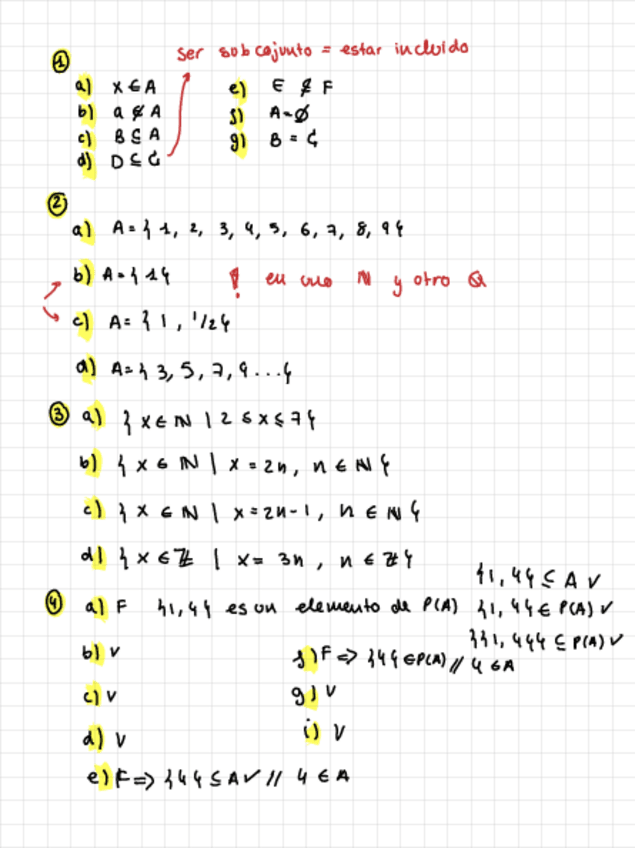 ser subconjunto = estar incluido
①
a) x ∈ A
b) a ∉ A
c) B ⊆ A
d) D ⊆ C
e) E ⊈ F
f) A = ∅
g) B = C
②
a) A = { 1, 2, 3, 4, 5, 6, 7, 8, 9 }
b) A = { 1 } ! en uno ℕ y otro ℚ
c) A = { 1, 1/2 }
d) A = { 3, 5, 7, 9 ... }
③ a) { x ∈ ℕ | 2 ≤ x ≤ 7 }
b) { x ∈ ℕ | x = 2n, n ∈ ℕ }
c) { x ∈ ℕ | x = 2n-1, n ∈ ℕ }
d) { x ∈ ℤ | x = 3n, n ∈ ℤ }
{1, 4} ⊆ A ✓
④ a) F {1, 4} es un elemento de P(A) {1, 4} ∈ P(A) ✓
{{1, 4}} ⊆ P(A) ✓
b) V
c) V
d) V
e) F => {4} ⊆ A ✓ // 4 ∈ A
f) F => {4} ∈ P(A) // 4 ∈ A
g) V
i) V